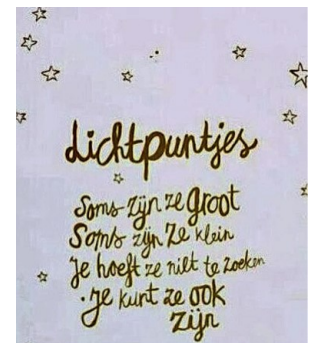 Lichtpuntjes
Soms zijn ze groot
Soms zijn ze klein
Je hoeft ze niet te zoeken
· Je kunt ze ook
zijn